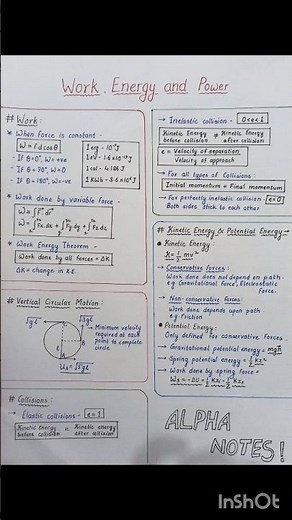 Work, Energy and Power
# Work:
* When force is constant -
W = Fd cosθ
- If θ=0°, W=+ve
- If θ=90°, W=0
- If θ=180°, W=-ve
1 erg = 10⁻⁷J
1 eV = 1.6×10⁻¹⁹J
1 cal = 4.186 J
1 KWh = 3.6×10⁶J
* Work done by variable force -
* Work Energy Theorem -
Work done by all forces = ΔK
ΔK = change in K.E.
# Vertical Circular Motion:
√gl
√3gl
→ Minimum velocity
required at each
point to complete
circle.
# Collisions:
→ Elastic collisions - e=1
Kinetic Energy before collision = Kinetic energy after collision
→ Inelastic collision - 0<e<1
Kinetic Energy before collision ≠ Kinetic Energy after collision
e = Velocity of separation
Velocity of approach
→ For all types of Collisions:
Initial momentum = Final momentum
→ For perfectly inelastic collision - e=0
Both sides stick to each other
# Kinetic Energy & Potential Energy→
* Kinetic Energy:
K = ½ mv²
→ Conservative forces:
Work done does not depend on path
eg Gravitational force, Electrostatic
force.
→ Non-conservative forces:
Work done depends upon path
eg: Friction
* Potential Energy:
Only defined for conservative forces.
→ Gravitational potential energy = mgh
→ Spring potential energy = ½ kx²
→ Work done by spring force =
ALPHA
NOTES!
InShOt